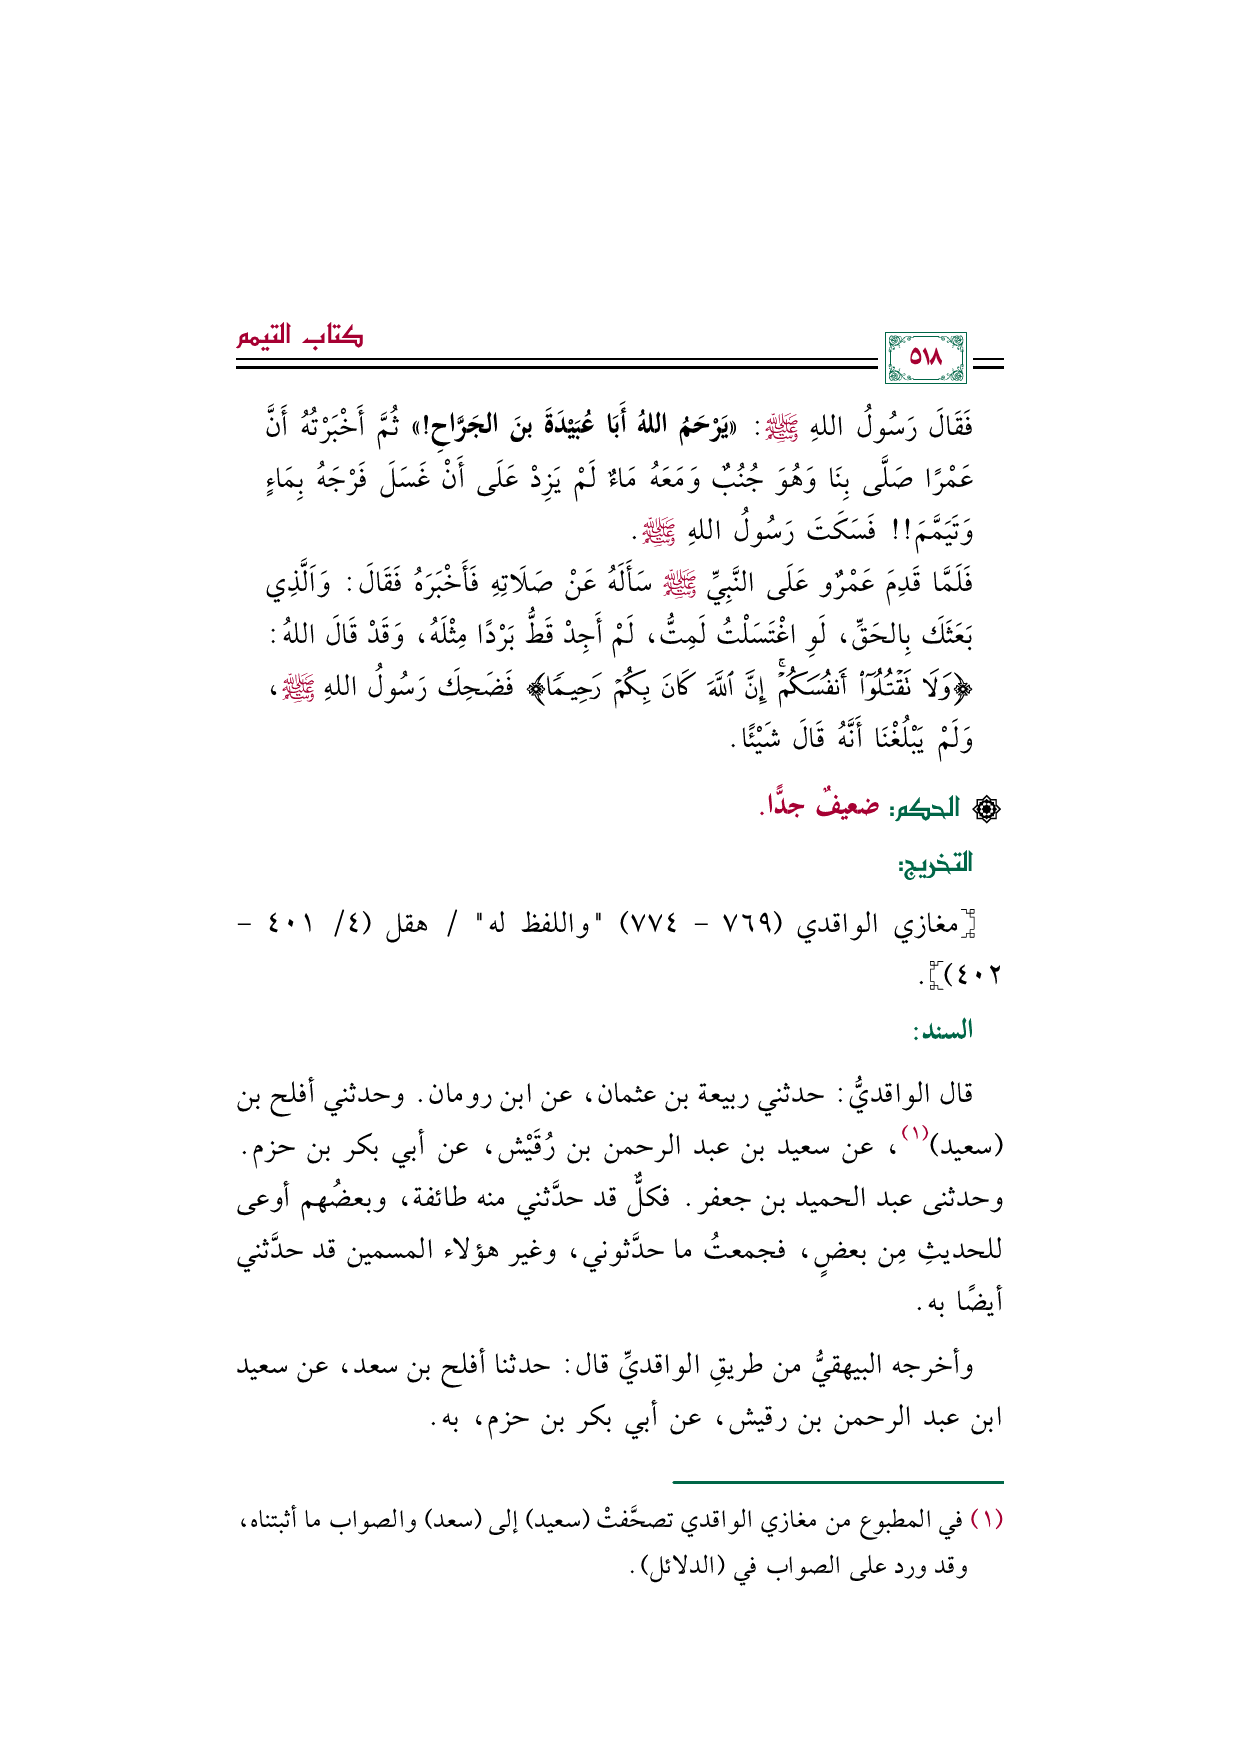 كتاب التيمم
٥١٨
فَقَالَ رَسُولُ اللهِ ﷺ: «يَرْحَمُ اللهُ أَبَا عُبَيْدَةَ بنَ الجَرَّاحِ!» ثُمَّ أَخْبَرْتُهُ أَنَّ
عَمْرًا صَلَّى بِنَا وَهُوَ جُنُبٌ وَمَعَهُ مَاءٌ لَمْ يَزِدْ عَلَى أَنْ غَسَلَ فَرْجَهُ بِمَاءٍ
وَتَيَمَّمَ!! فَسَكَتَ رَسُولُ اللهِ ﷺ.
فَلَمَّا قَدِمَ عَمْرٌو عَلَى النَّبِيِّ ﷺ سَأَلَهُ عَنْ صَلَاتِهِ فَأَخْبَرَهُ فَقَالَ: وَالَّذِي
بَعَثَكَ بِالحَقِّ، لَوِ اغْتَسَلْتُ لَمِتُّ، لَمْ أَجِدْ قَطُّ بَرْدًا مِثْلَهُ، وَقَدْ قَالَ اللهُ:
﴿وَلَا تَقْتُلُوٓا۟ أَنفُسَكُمْ ۚ إِنَّ ٱللَّهَ كَانَ بِكُمْ رَحِيمًا﴾ فَضَحِكَ رَسُولُ اللهِ ﷺ،
وَلَمْ يَبْلُغْنَا أَنَّهُ قَالَ شَيْئًا.
الحكم: ضعيفٌ جدًّا.
التخريج:
[مغازي الواقدي (٧٦٩ – ٧٧٤) "واللفظ له" / هقل (٤/ ٤٠١ –
٤٠٢)].
السند:
قال الواقديُّ: حدثني ربيعة بن عثمان، عن ابن رومان. وحدثني أفلح بن
(سعيد)(١)، عن سعيد بن عبد الرحمن بن رُقَيْش، عن أبي بكر بن حزم.
وحدثنى عبد الحميد بن جعفر. فكلٌّ قد حدَّثني منه طائفة، وبعضُهم أوعى
للحديثِ مِن بعضٍ، فجمعتُ ما حدَّثوني، وغير هؤلاء المسمين قد حدَّثني
أيضًا به.
وأخرجه البيهقيُّ من طريقِ الواقديِّ قال: حدثنا أفلح بن سعد، عن سعيد
ابن عبد الرحمن بن رقيش، عن أبي بكر بن حزم، به.
(١) في المطبوع من مغازي الواقدي تصحَّفتْ (سعيد) إلى (سعد) والصواب ما أثبتناه،
وقد ورد على الصواب في (الدلائل).